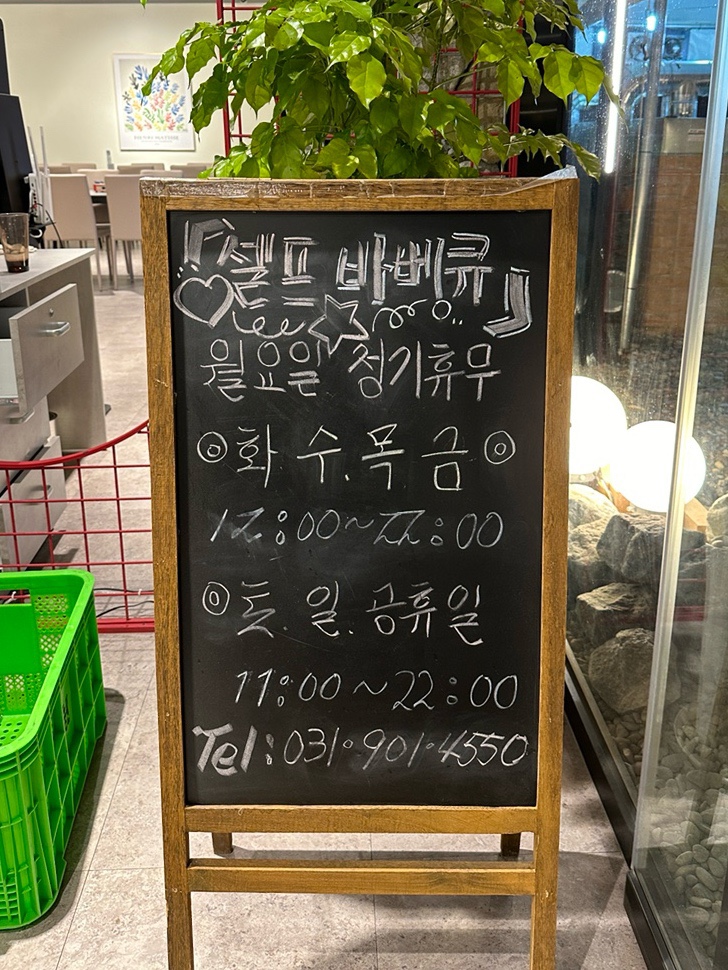 「셀프 바베큐」
월요일 정기휴무
◎화.수.목.금◎
12:00~22:00
◎토.일.공휴일
11:00~22:00
Tel:031·901·4550